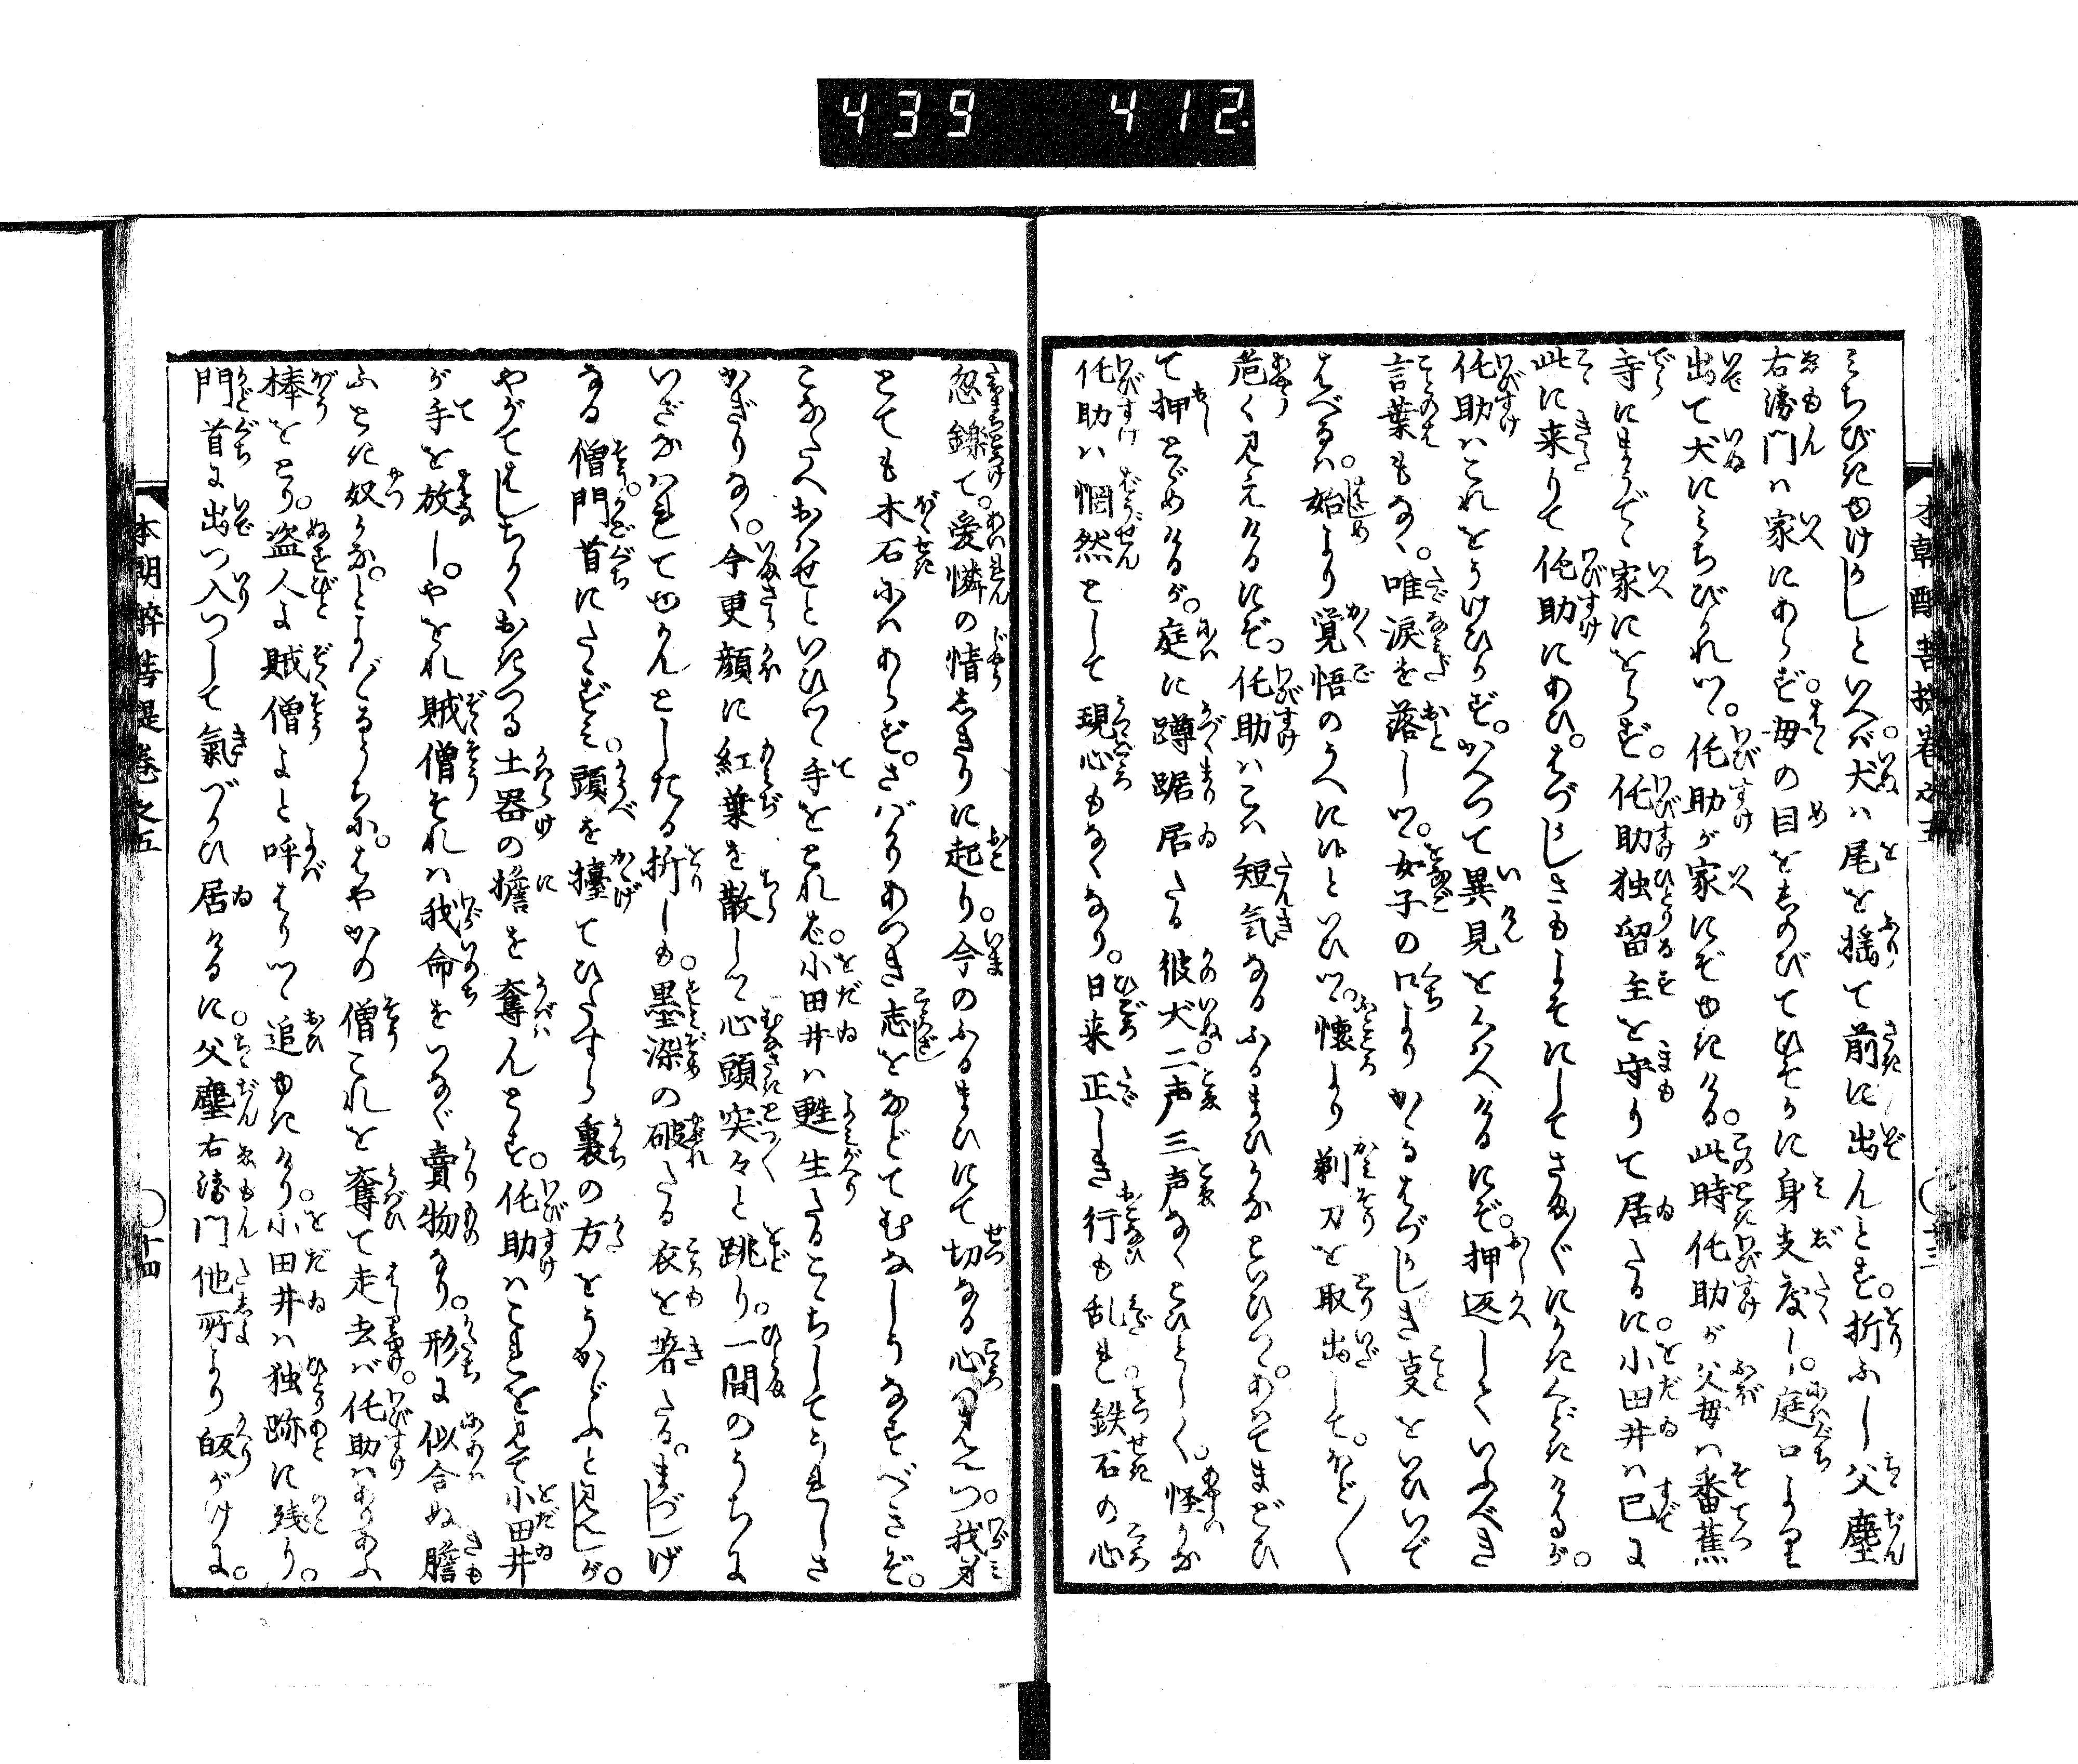 439 412.
本朝酔菩提巻之五
みちびきゆけかしといへば犬は尾を揺て前に出んとす。折ふし父塵
右衛門は家にあらず。母の目をしのびてひそかに身支度し。庭口より
出て犬にみちびかれつゝ。侘助が家にぞゆきける。此時侘助が父母は番蕉
寺にまうでゝ家にをらず。侘助独留主を守りて居たるに。小田井は已に
此に来りて侘助にあひ。はづかしさもよそにしてさま〴〵にかきくどきけるが。
侘助はこれをうけひかず。かへつて異見をくはへけるにぞ。押返していふべき
言葉もなく。唯涙を落しつゝ。女子の口よりかゝるはづかしき事をいひいで
はべるは。始より覚悟のうへに候といひつゝ。懐より剃刀を取出して。ほど〳〵
危く見えけるにぞ。侘助はこは短気なるふるまひかなといひつゝ。あはてまどひ
て押とゞめけるが。庭に蹲踞居たる彼犬二声三声なくとひとしく。怪かな
侘助は惘然として現心もなくなり。日来正しき行も乱れ鉄石の心
忽鑠て。愛憐の情しきりに起り。今のふるまひにて切なる心は見えつ。我身
とても木石にはあらず。さばかりあつき志をなどてむなしうなすべきぞ。
こなたへおはせといひつゝ手をとれば。小田井は甦生たるこゝちしてうれしさ
かぎりなく。今更顔に紅葉を散しつゝ心頭突々と跳り。一間のうちに
いざなはれてゆかんとしたる折しも。墨染の破たる衣を著たる。まづしげ
なる僧門首にたゝずみ。頭を擡てひたすら裏の方をうかゞふと見えしが。
やがてはしりちかくおきつる土器の擔を奪んとす。侘助はこれを見て小田井
が手を放し。やをれ賊僧それは我命をつなぐ賣物なり。形に似合ぬ膽
ふとき奴かな。とよばゝるうちに。はやかの僧これを奪て走去ば侘助はありあふ
棒をとり。盗人よ賊僧よと呼はりつゝ追ゆきけり。小田井は独跡に残り。
門首に出つ入つして氣づかひ居けるに。父塵右衛門他所より皈がけに。
本朝酔菩提巻之五
十四